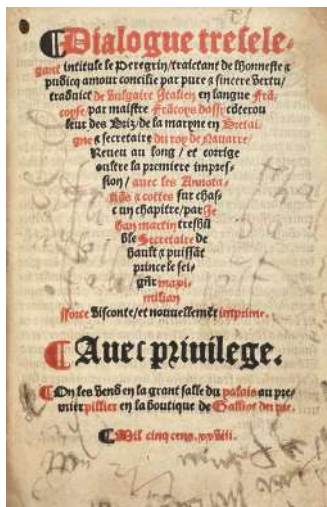 Dialogue treselegant
gant intitule le Peregrin/traictant de lhonneste &
pudicq amour concilie par pure & sincere vertu/
traduict de vulgaire Italien en langue Frã-
coyse/par maistre Frãcoys dassy cõterou
leur des Briz/de la maryne en Bretai-
gne & secretaire du roy de Nauarre/
Reueu au long / et corrige
oultre la premiere impres-
sion/ auec les Annota-
tiõs & cottes sur chas-
cun chapitre/par Je
han martin treshũ
ble Secretaire de
hault & puissãt
prince le sei-
gñr maxi-
milian
sforce Visconte/et nouuellemẽt imprime.
Auec priuilege.
On les vend en la grant salle du palais au pre-
mier pillier en la boutique de Galliot du pre.
Mil cinq cens. xxviii.